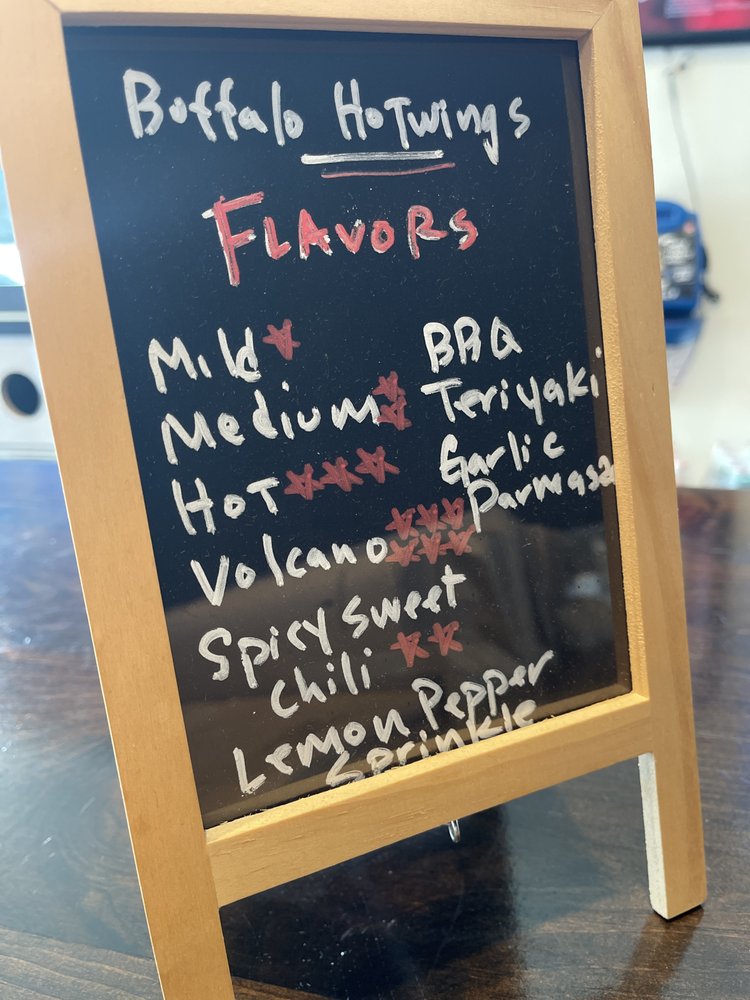 Buffalo HoTwings
FLAVORS
Mild
Medium
HoT
Volcano
Spicy sweet
Chili
Lemon Pepper
Sprinkle
BBQ
Teriyaki
Garlic
Parmasa